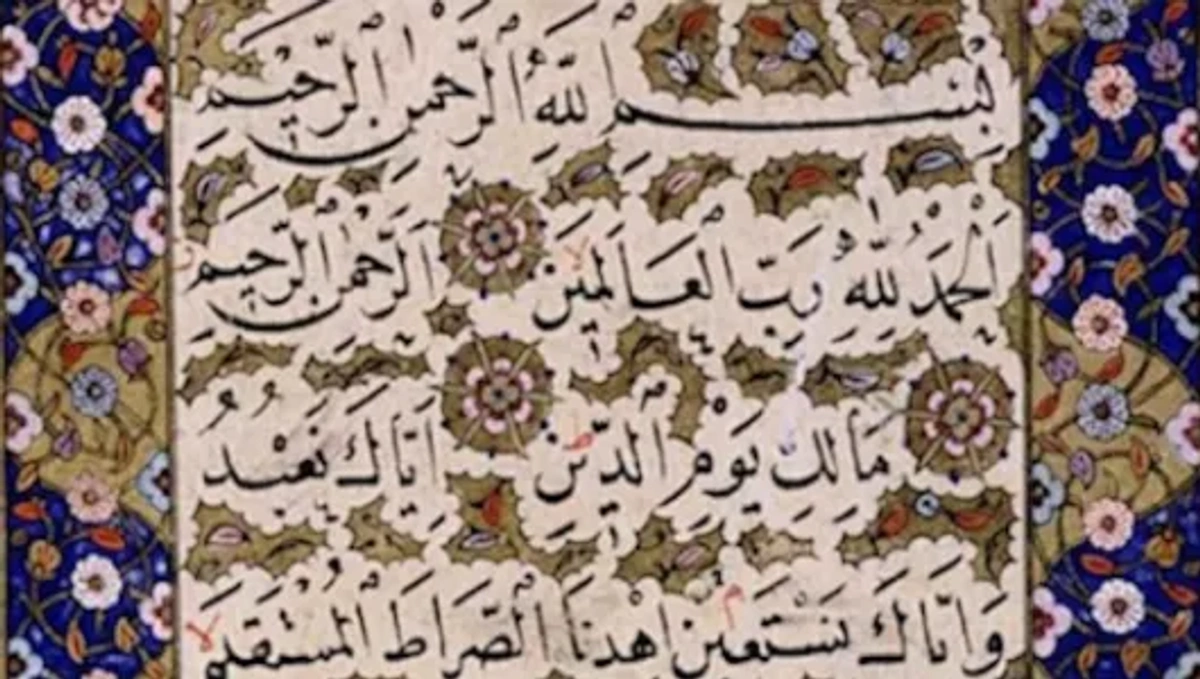 بِسْمِ اللّٰهِ الرَّحْمٰنِ الرَّحِيمِ
اَلْحَمْدُ لِلّٰهِ رَبِّ الْعَالَمِينَ ۙ اَلرَّحْمٰنِ الرَّحِيمِ ۙ
مَالِكِ يَوْمِ الدِّينِ ۜ اِيَّاكَ نَعْبُدُ
وَاِيَّاكَ نَسْتَعِينُ ۜ اِهْدِنَا الصِّرَاطَ الْمُسْتَقِيمَ ۙ